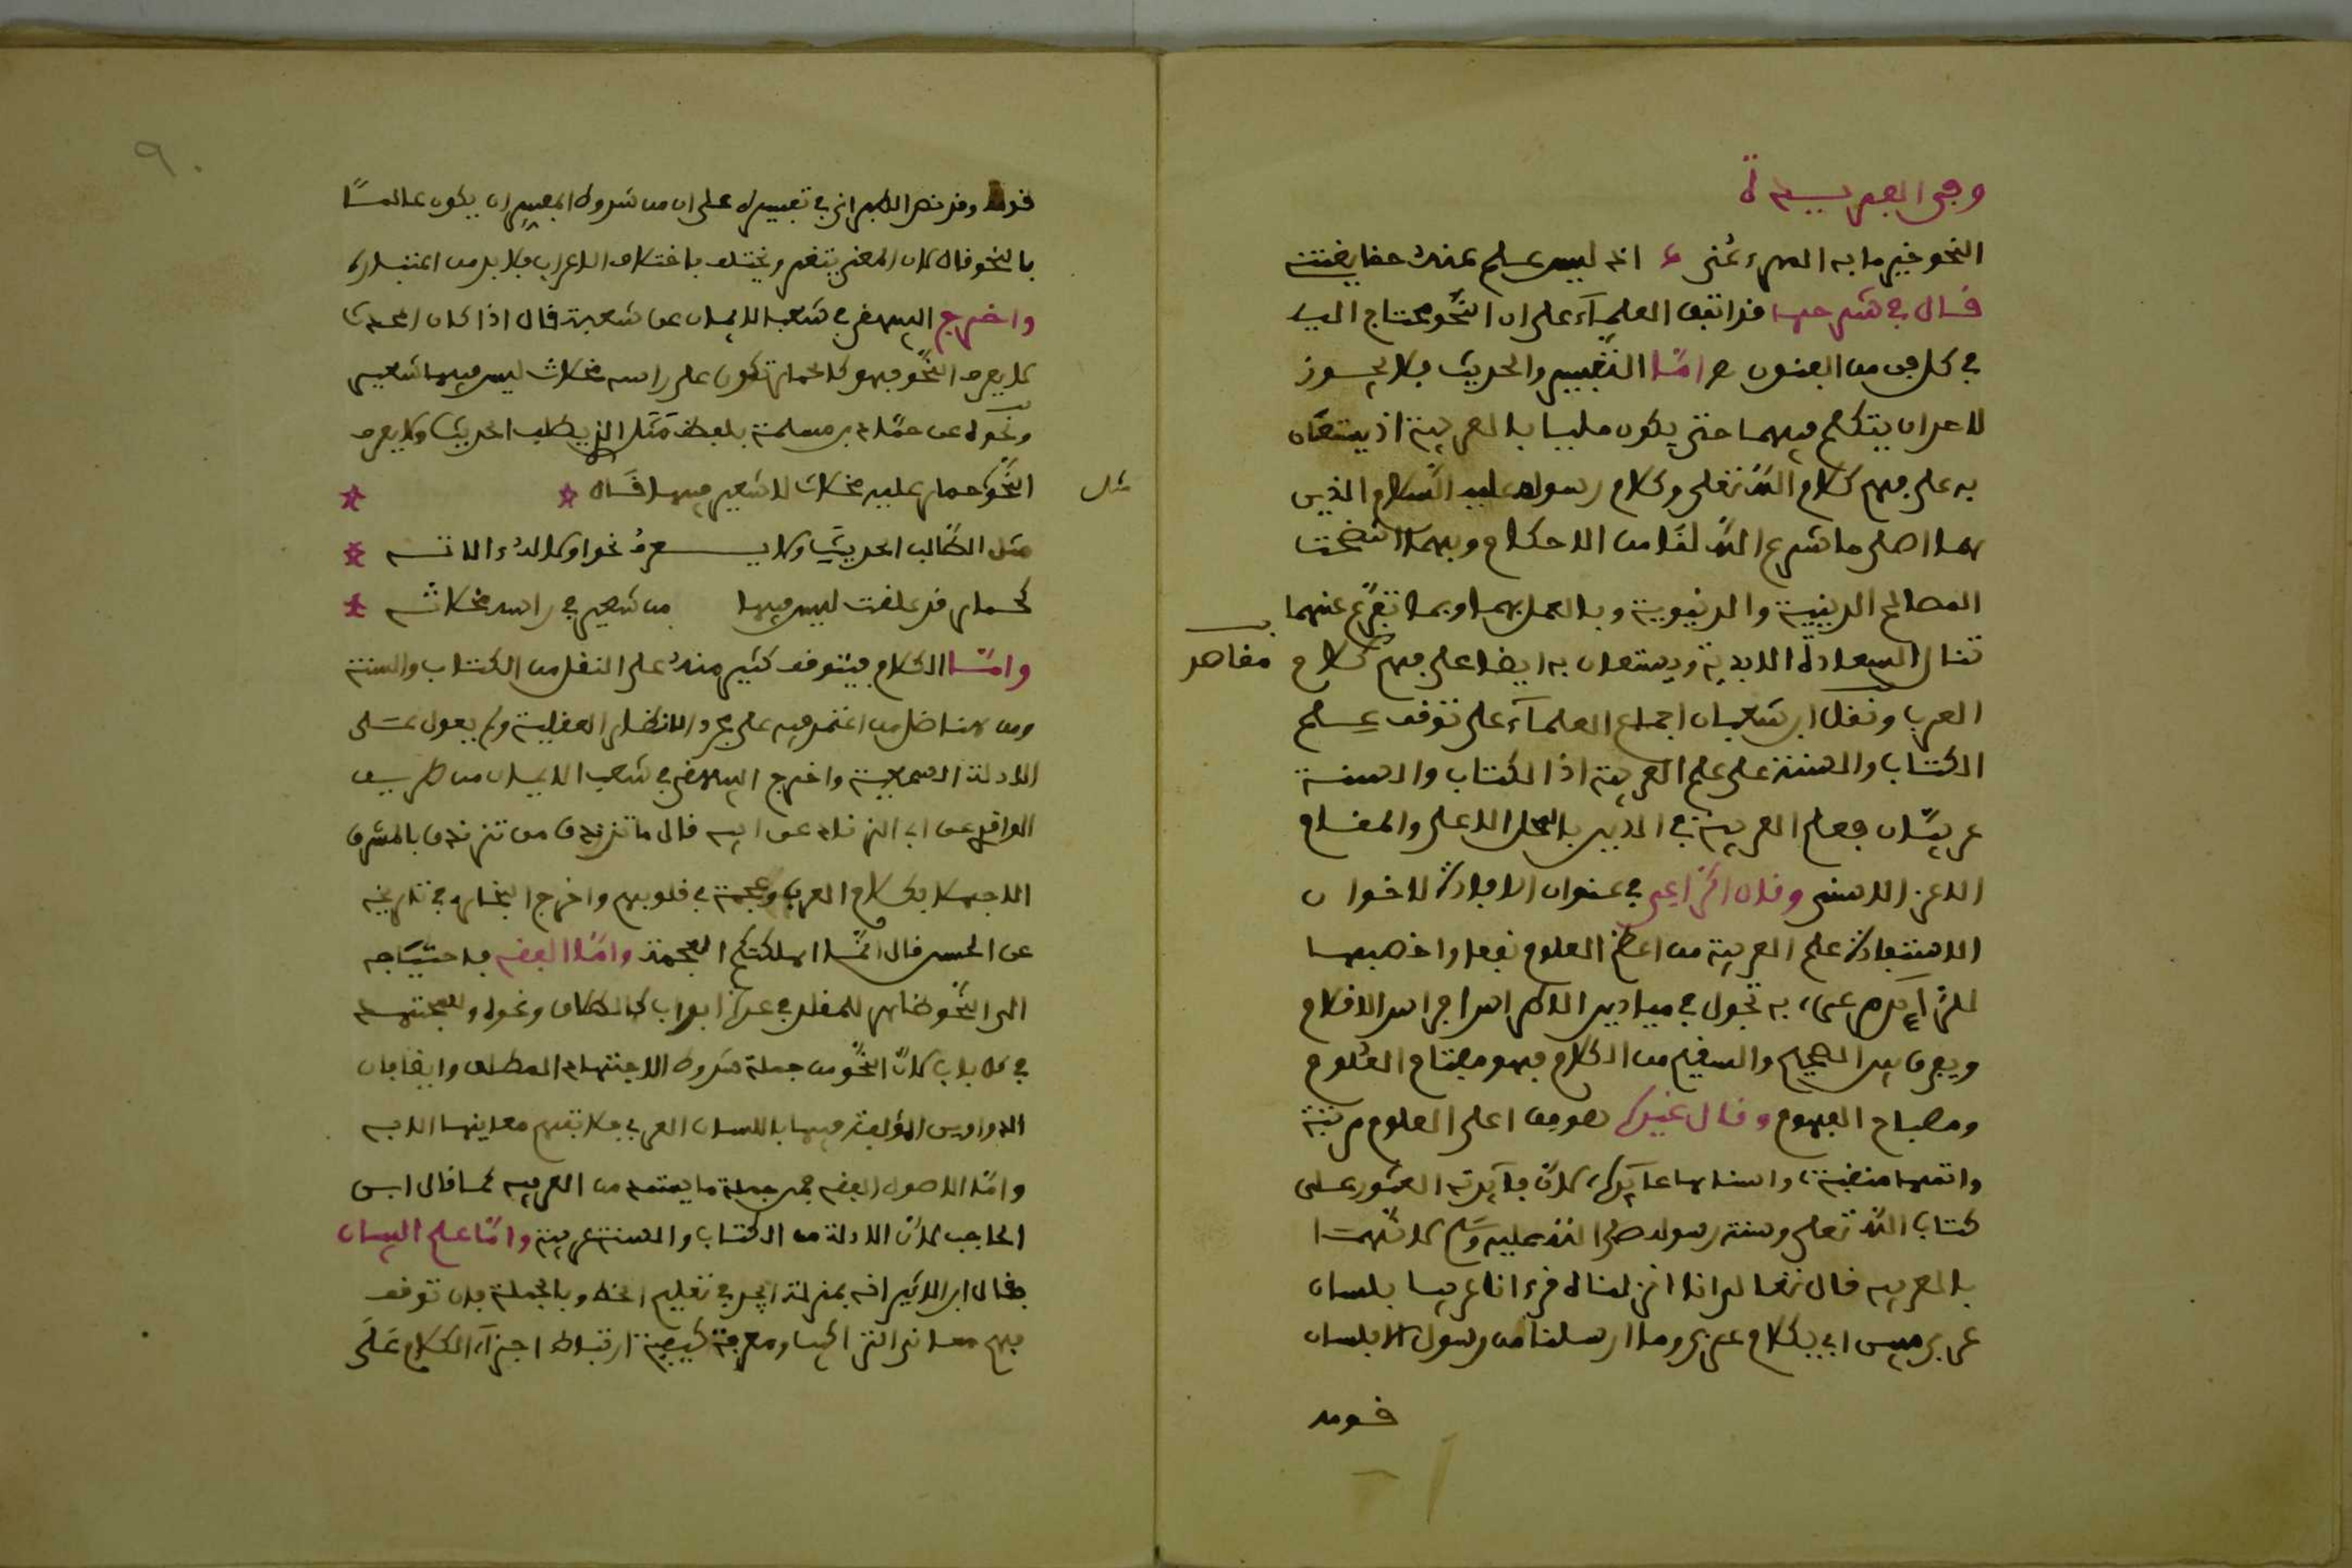 وفى الفريدة
النحو خير ما به المرء عُنى ۞ اذ ليس علم عنه حقا يغتنى
قال فى شرحها قد اتفق العلماء على ان النَّحو محتاج اليه
فى كل فن من الفنون لا سيما التفسير والحديث فلا يجوز
لاحد ان يتكلم فيهما حتى يكون مليا بالعربية اذ يستعان
به على فهم كلام الله تعلى وكلام رسوله عليه السَّلام الذين
هما اصلى ما شرع الله لنا من الاحكام وبهما اتضحت
المصالح الدينية والدنيوية وبالعمل بهما وبما تفرع عنهما
تنال السعادة الابدية ويستعان به ايضا على فهم كلام
مقاصد
العرب ونقل ابن شعبان اجماع العلمآء على توقف علم
الكتاب والسنة على علم العربية اذ الكتاب والسنة
عربيَّان فعلم العربية فى الدين بالمحل الاعلى والمقام
الاعز الاسنى وقال الراعى فى عنوان الافادة لاخوان
الاستفادة علم العربية من اعظم العلوم نفعا واخصبها
للرائد مرعى، به تجول فى ميادين الاطراس اجراس الاقلام
ويعرف بين الصحيح والسقيم من الكلام فهو مفتاح العلوم
ومصباح الفهوم وقال غيره هو من اعلى العلوم مرتبة
واتمها منقبة، واسناها عائدة، لانّ فآئدته العثور على
كتاب الله تعلى وسنة رسوله صلى الله عليه وسلم لانهما
بالعربية قال تعالى انا انزلناه قرءانا عربيا بلسان
عربى مبين اى بكلام عربى وما ارسلنا من رسول الا بلسان
قومه
٩.
قومه وقد نص الطبرانى فى تفسيره على ان من شروط المفسر ان يكون عالمًا
بالنحو قال لان المعنى يتغير ويختلف باختلاف الاعراب فلا بد من اعتباره
واخرج البيهقى فى شعب الايمان عن شعبة قال اذا كان المحدث
لا يعرف النَّحو فهو كالحمار تكون على راسه مخلات ليس فيها شعير
ونحوه عن حمَّاد بن سلمة بلفظ مَثَل الذى يطلب الحديث ولا يعرف
مثل
النَّحو كحمار عليه مخلات لا شعير فيها قال
مثل الطَّالب الحديث ولا يـعرفُ نحوا ولا له ءالاته
كحمار قد علقت ليس فيها من شعير فى راسه مخلاته
وامَّا الكلام فيتوقف كثير منه على النقل من الكتاب والسنة
ومن هنا ضل من اعتمد فيه على مجرد الانظار العقلية ولم يعول على
الادلة السمعية واخرج البيهقى فى شعب الايمان من طريق
الواقدى عن ابى الزناد عن ابيه قال ما تزندق من تزندق بالمشرق
الا جهلا بكلام العرب وعجمة فى قلوبهم واخرج البخارى فى تاريخه
عن الحسن قال انَّما اهلكتكم العجمة وامَّا الفقه فاحتياجه
الى النَّحو ظاهر للمقلد فى عدة ابواب كالطلاق ونحوه وللمجتهد
فى كل باب لانَّ النحو من جملة شروط الاجتهاد المطلق وايضا فان
الدواوين المؤلفة فيها باللسان العربى فلا تفهم معانيها الا به
وامَّا الاصول الفقه فمن جملة ما يستمد من العربية كما قال ابن
الحاجب لانَّ الادلة من الكتاب والسنة عربية وامَّا علم البيان
فقال ابن الاثير انه بمنزلة ابجد فى تعليم الخط وبالجملة فان توقف
فهم معانى التراكيب ومعرفة كيفية ارتباط اجزآء الكلام عَلَى